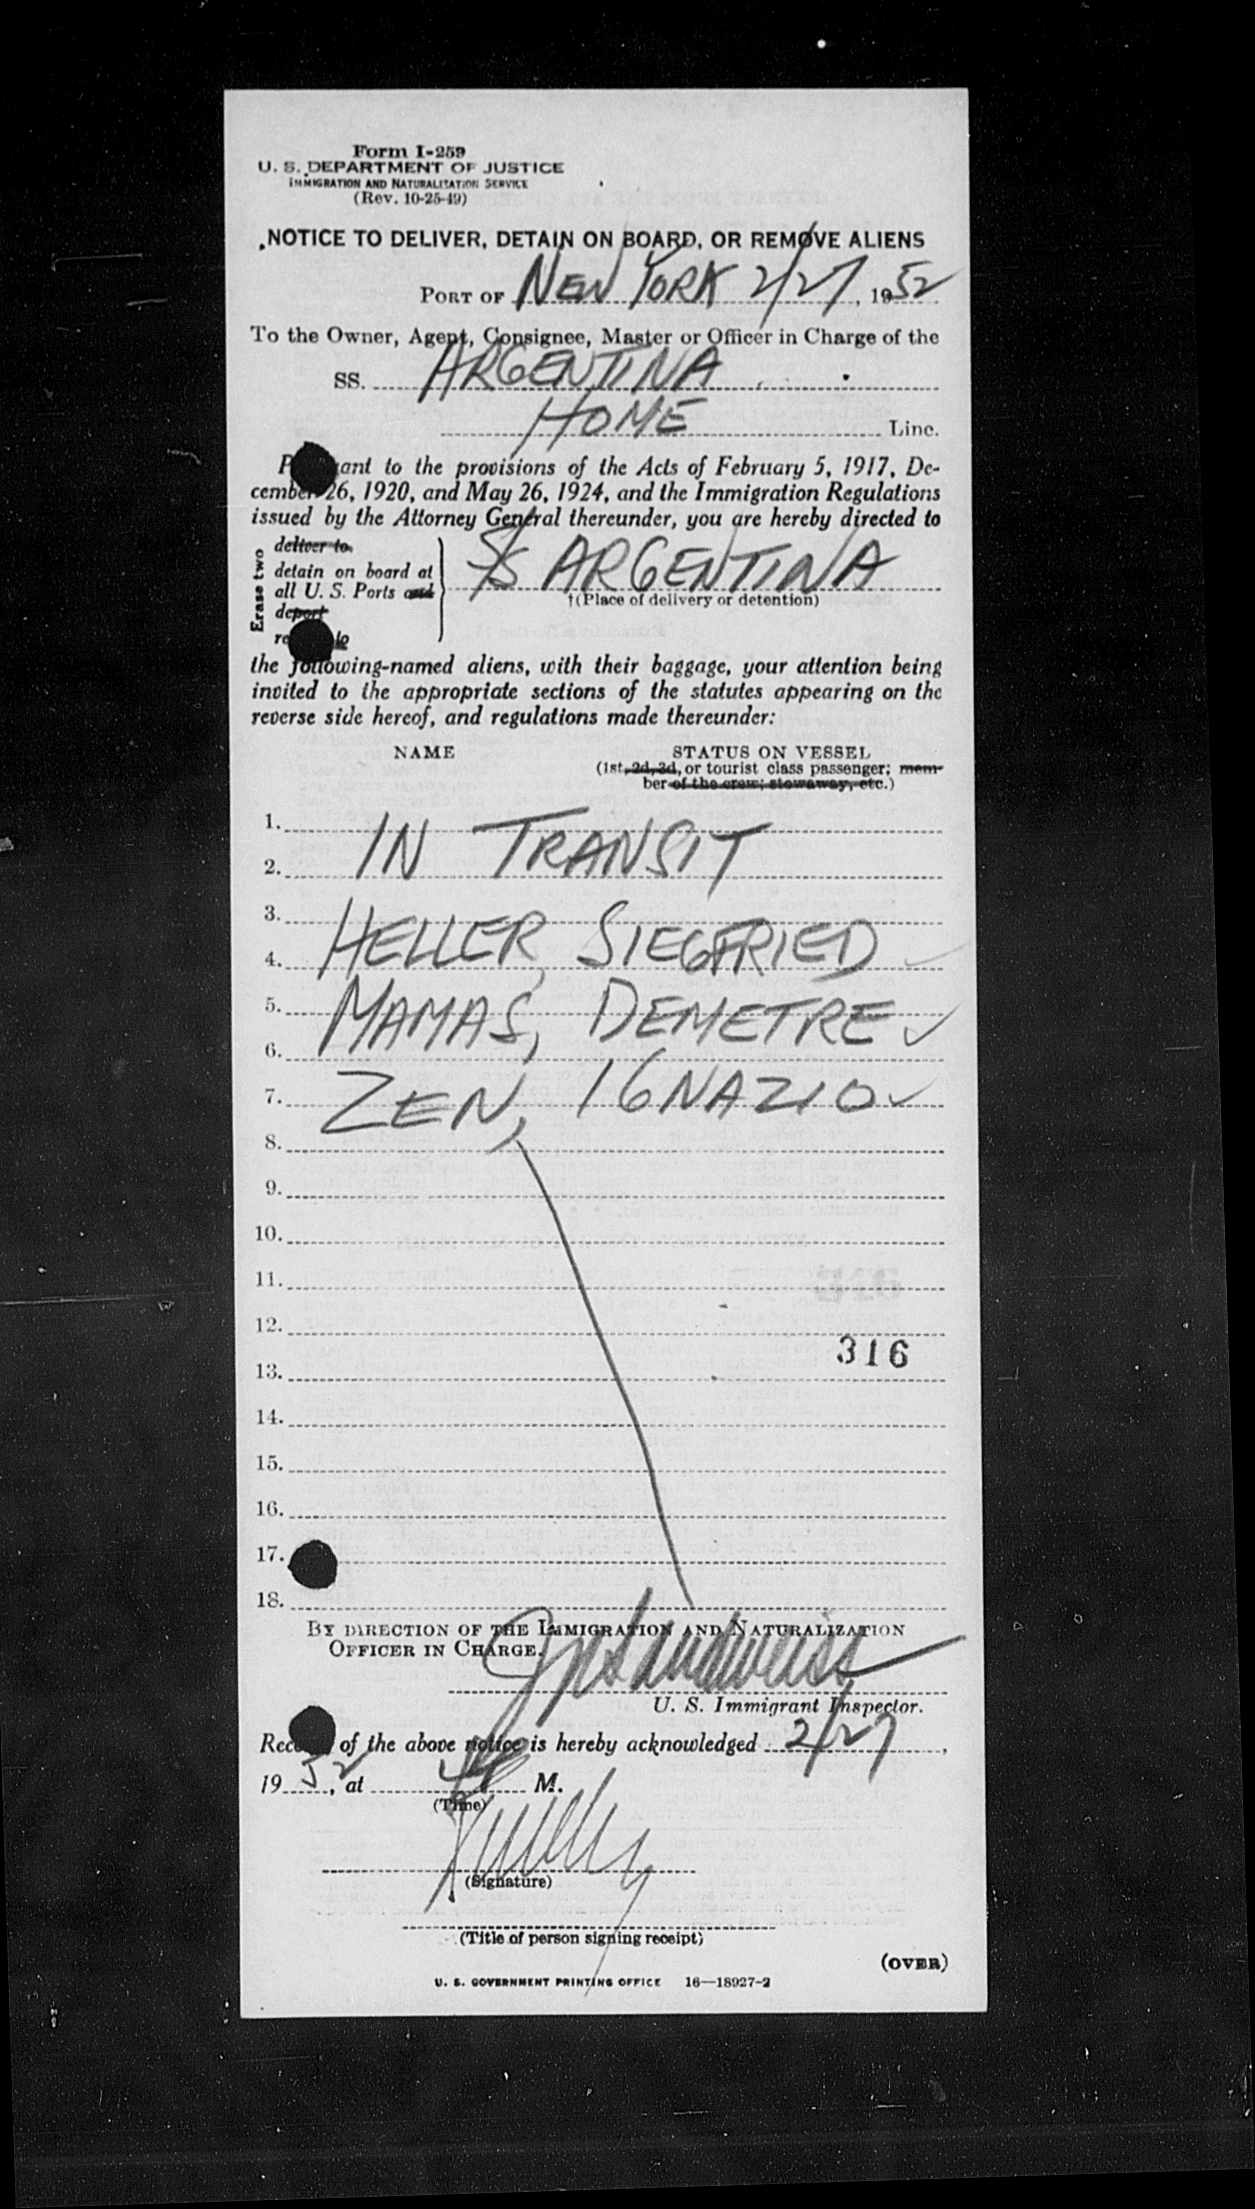 Form I-259
U. S. DEPARTMENT OF JUSTICE
IMMIGRATION AND NATURALIZATION SERVICE
(Rev. 10-25-49)
NOTICE TO DELIVER, DETAIN ON BOARD, OR REMOVE ALIENS
PORT OF NEW YORK 2/27, 1952
To the Owner, Agent, Consignee, Master or Officer in Charge of the
SS. ARGENTINA
HOME Line.
ant to the provisions of the Acts of February 5, 1917, De-
cember 26, 1920, and May 26, 1924, and the Immigration Regulations
issued by the Attorney General thereunder, you are hereby directed to
Erase two
deliver to
detain on board at
all U. S. Ports and
deport
to
S/S ARGENTINA
†(Place of delivery or detention)
the following-named aliens, with their baggage, your attention being
invited to the appropriate sections of the statutes appearing on the
reverse side hereof, and regulations made thereunder:
NAME STATUS ON VESSEL
(1st, 2d, 3d, or tourist class passenger; mem-
ber of the crew; stowaway, etc.)
1.
IN TRANSIT
2.
3.
HELLER, SIEGFRIED
4.
5.
MAMAS, DEMETRE ✓
6.
7.
ZEN, IGNAZIO ✓
8.
9.
10.
11.
12.
316
13.
14.
15.
16.
17.
18.
BY DIRECTION OF THE IMMIGRATION AND NATURALIZATION
OFFICER IN CHARGE.
U. S. Immigrant Inspector.
of the above notice is hereby acknowledged 2/27,
1952, at M.
(Time)
(Signature)
(Title of person signing receipt)
(OVER)
U. S. GOVERNMENT PRINTING OFFICE 16—18927-2